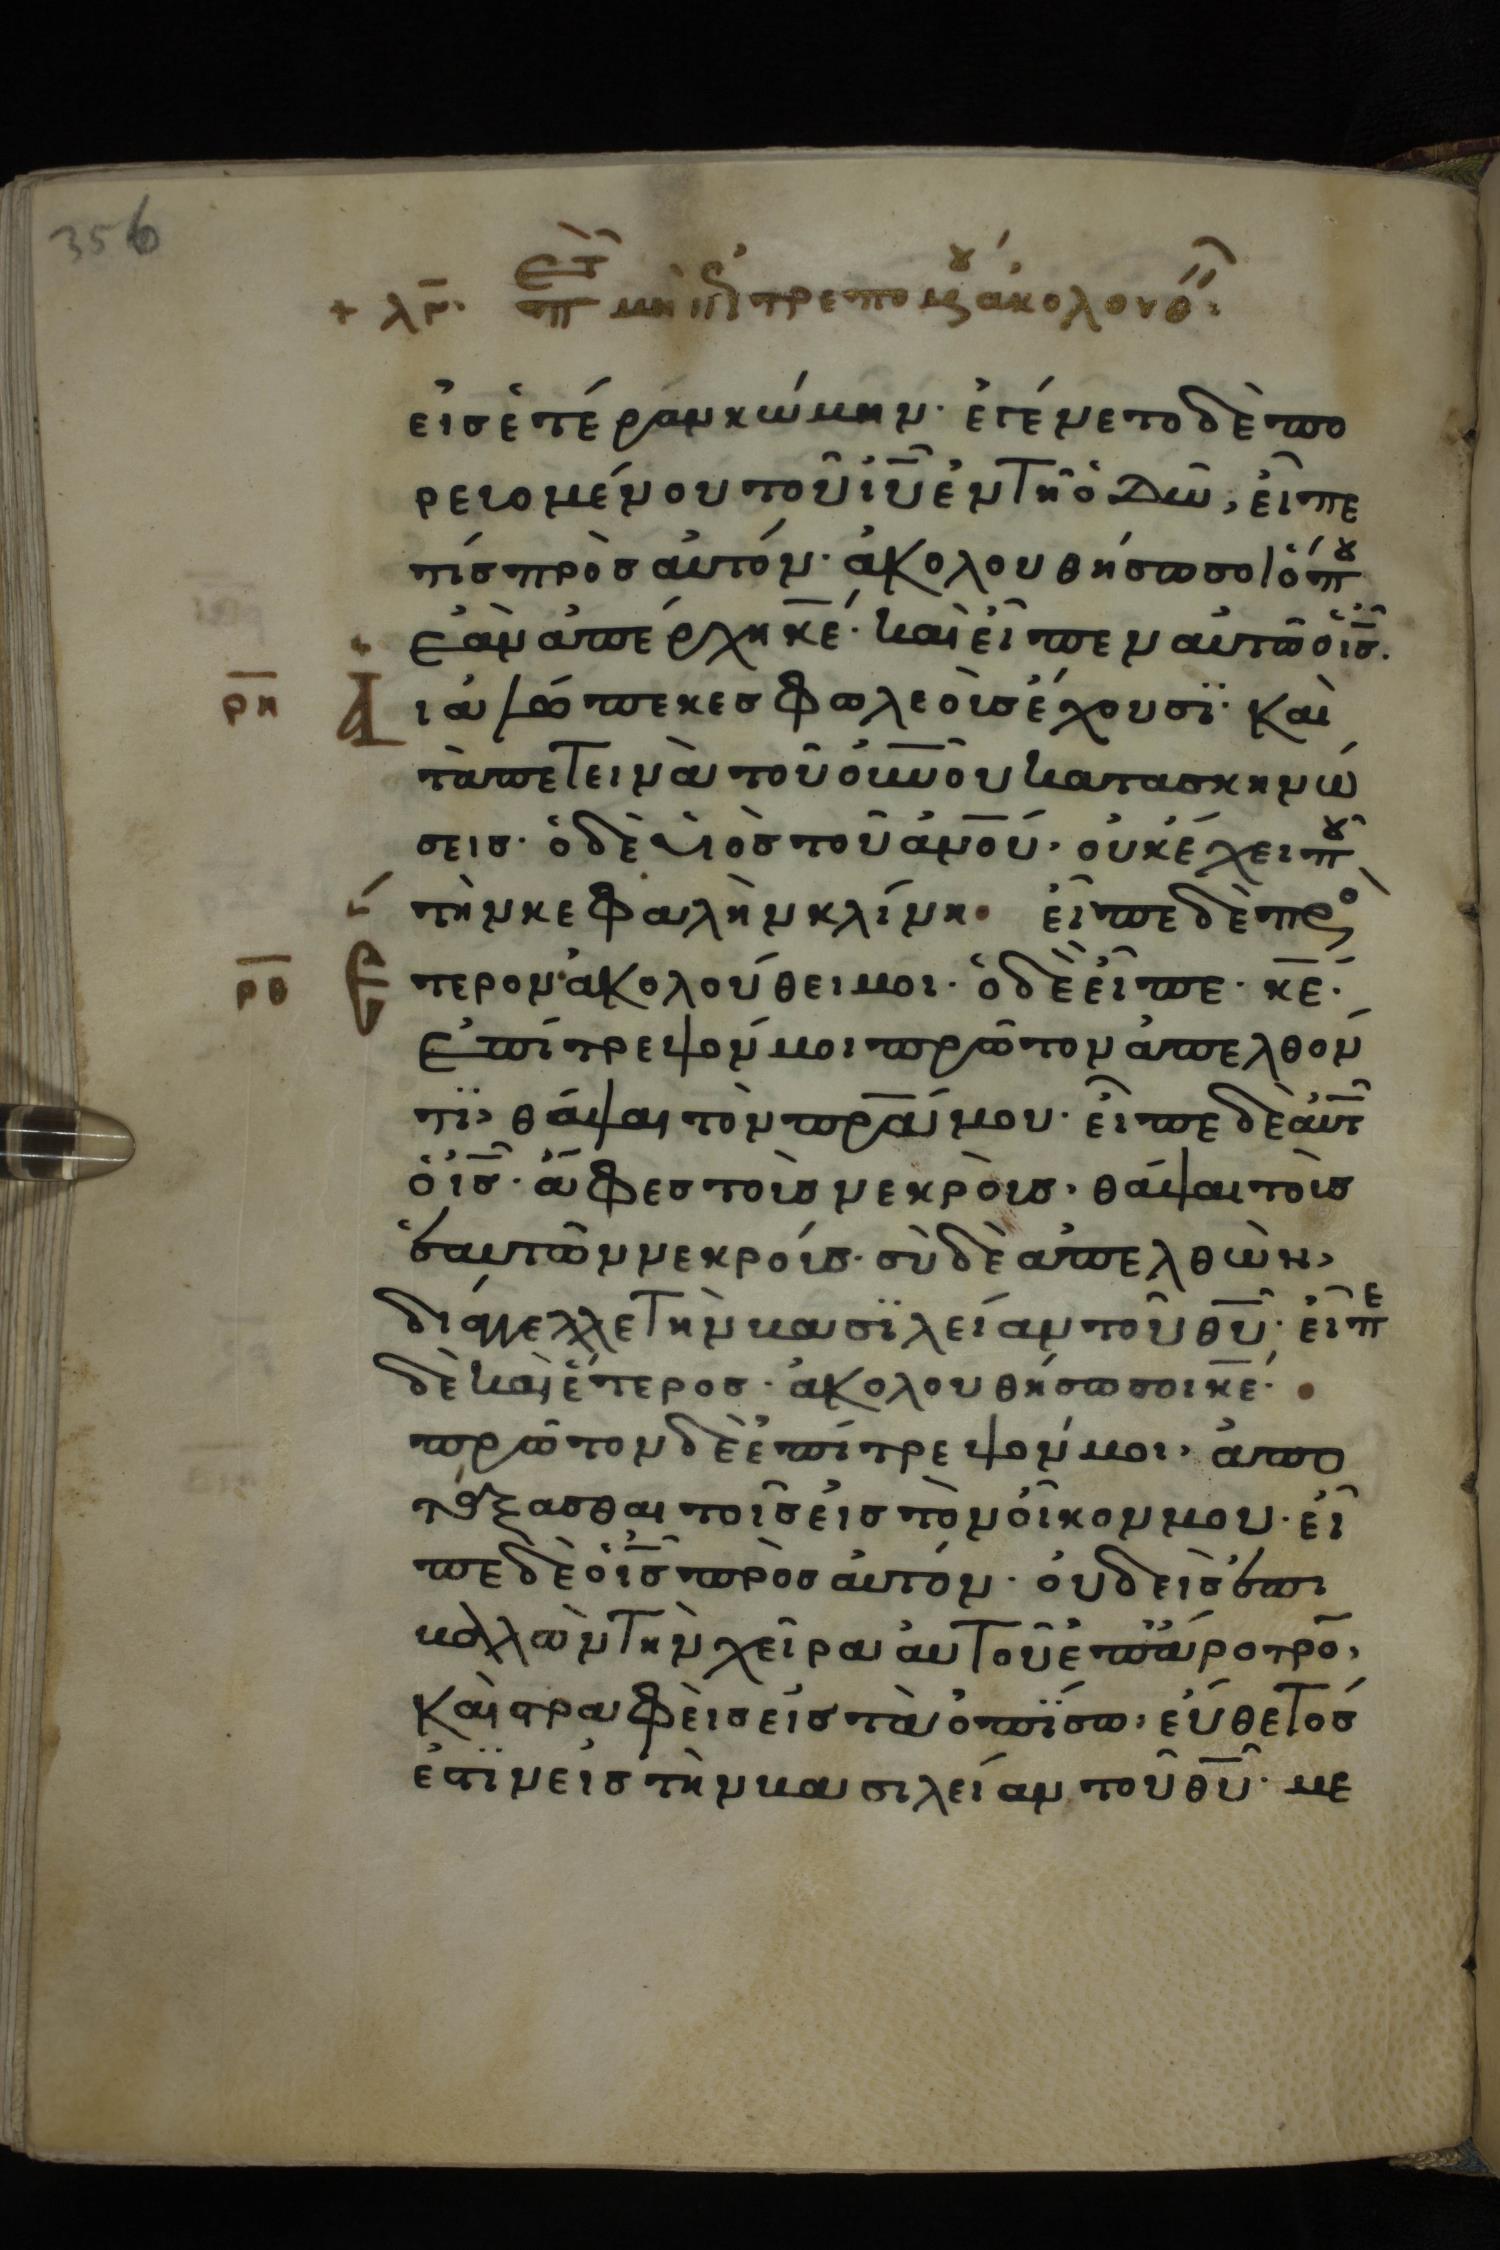 356
εἰσ ἑτέραν κώμην· ἐγένετο δὲ πο
ρευομένου τοῦ ἰῦ ἐν τῆ ὁδῶ, εἶπε
τίσ πρὸσ αὐτόν· ἀκολουθήσω σοι ὅπου
ἐὰν ἀπέρχη κ̅ε· καὶ εἶπεν αὐτῶ ὁ ι̅σ·
ρη Α ι ἀλώπεκεσ φωλεοὺσ ἔχουσϊ· καὶ
τὰ πετεινὰ τοῦ ο̅υ̅νου κατασκηνώ
σεισ· ὁ δὲ υἱὸσ τοῦ α̅ν̅ου· οὐκ ἔχει ποῦ
τὴν κεφαλὴν κλίνη· εἶπε δὲ πρὸσ
ρθ Ε τερον· ἀκολούθει μοι· ὁ δὲ εἶπε· κ̅ε·
ἐπίτρεψόν μοι πρῶτον ἀπελθόν
τϊ, θάψαι τὸν π̅ρ̅α μου· εἶπε δὲ αὐτ
ὁ ι̅σ· ἄφεσ τοὺσ νεκροὺσ, θάψαι τοὺσ
ἑαυτῶν νεκρούσ· σὺ δὲ ἀπελθὼν,
διάγγελλε τὴν βασϊλείαν τοῦ θ̅υ· εἶπε
δὲ καὶ ἕτεροσ· ἀκολουθήσω σοι κ̅ε·
πρῶτον δὲ ἐπίτρεψόν μοι, ἀπο
τάξασθαι τοῖσ εἰσ τὸν οἶκον μου· εἶ
πε δὲ ὁ ι̅σ πρὸσ αὐτόν· οὐδεὶσ ἐπι
βαλλὼν τὴν χεῖρα αὐτοῦ ἐπ ἄροτρο̅,
καὶ στραφεὶσ εἰσ τὰ ὀπϊσω, εὔθετόσ
ἐστϊν εἰσ τὴν βασιλείαν τοῦ θ̅υ· με